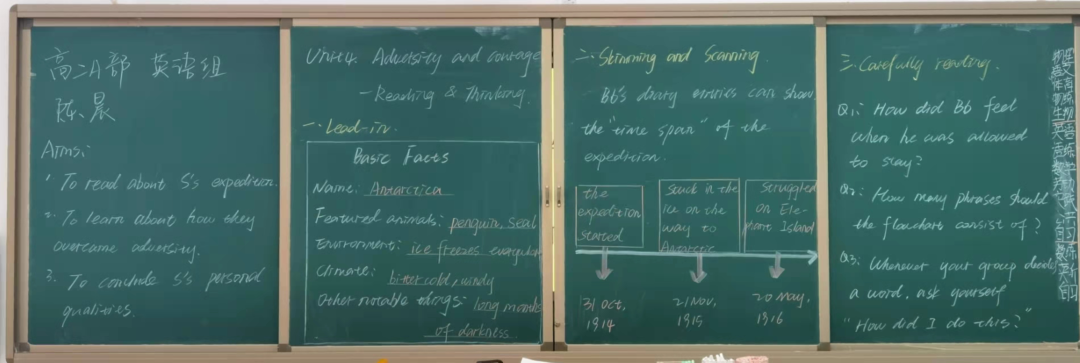 高二A部 英语组
陈晨
Aims:
1. To read about S's expedition.
2. To learn about how they
overcome adversity.
3. To conclude S's personal
qualities.
Unit4. Adversity and courage
-Reading & Thinking
一. Lead-in.
Basic Facts
Name: Antarctica
Featured animals: penguin, seal
Environment: ice freezes everywhere
Climate: bitter cold, windy
Other notable things: long months
of darkness
二. Skimming and Scanning.
Bb's diary entries can show
the "time span" of the
expedition.
the
expedition
started
Stuck in the
ice on the
way to
Antarctic
Struggled
on Ele-
phant Island
31 Oct,
1914
21 Nov,
1915
20 May,
1916
三. Carefully reading.
Q1: How did Bb feel
when he was allowed
to stay?
Q2: How many phrases should
the flowchart consist of?
Q3: Whenever your group decides
a word, ask yourself
"How did I do this?"